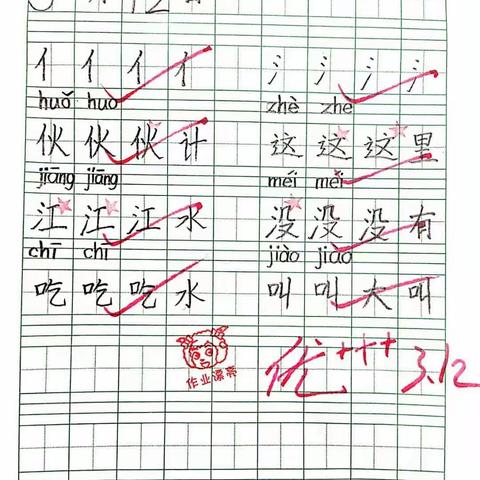 12
亻 亻 亻 亻 氵 氵 氵 氵
huǒ huǒ zhè zhè
伙 伙 伙 计 这 这 这 里
jiāng jiāng méi méi
江 江 江 水 没 没 没 有
chī chī jiào jiào
吃 吃 吃 水 叫 叫 大 叫
作业漂亮
优+++ 3.12